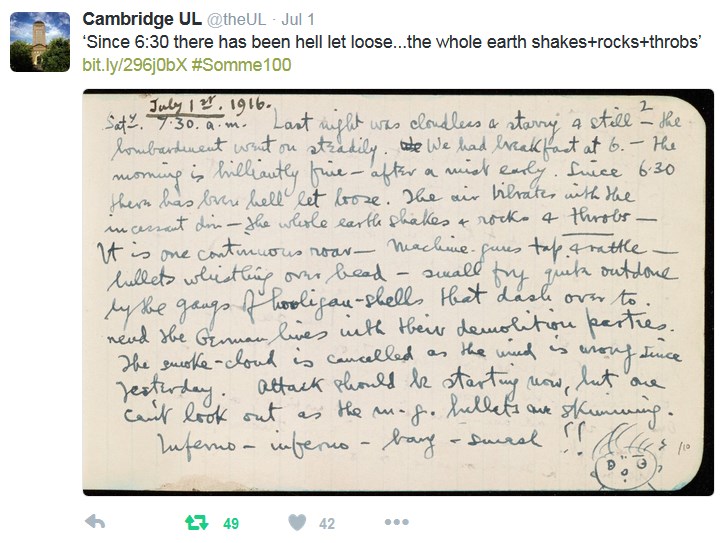 Cambridge UL @theUL · Jul 1
‘Since 6:30 there has been hell let loose...the whole earth shakes+rocks+throbs’
bit.ly/296j0bX #Somme100
July 1st. 1916.
2
Saty. 7.30. a.m. Last night was cloudless & starry & still – the
bombardment went on steadily. We had breakfast at 6. – the
morning is brilliantly fine – after a mist early. Since 6.30
there has been hell let loose. The air vibrates with the
incessant din – the whole earth shakes & rocks & throbs –
It is one continuous roar – Machine-guns tap & rattle –
bullets whistling over head – small fry quite outdone
by the gangs of hooligan-shells that dash over to
rend the German lines with their demolition parties.
The smoke-cloud is cancelled as the wind is wrong since
yesterday. Attack should be starting now, but one
can't look out as the m-g. bullets are skimming.
Inferno – inferno – bang – smash !!
49
42